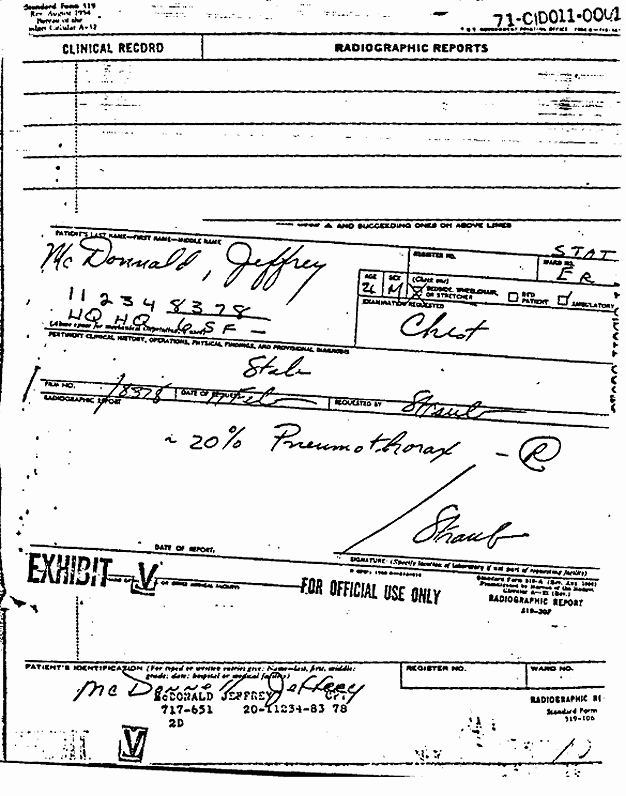 Standard Form 519
Rev. August 1954
Bureau of the
Circular A-32
71-CID011-0001
CLINICAL RECORD
RADIOGRAPHIC REPORTS
AND SUCCEEDING ONES ON ABOVE LINES
PATIENT'S LAST NAME—FIRST NAME—MIDDLE NAME
REGISTER NO.
STAT
WARD NO.
ER
McDonnald, Jeffrey
AGE
SEX
(Check one)
26
M
BEDSIDE, WHEELCHAIR,
OR STRETCHER
BED
PATIENT
AMBULATORY
EXAMINATION REQUESTED
11 2 3 4 8 3 7 8
Chest
HQ HQ SF -
PERTINENT CLINICAL HISTORY, OPERATIONS, PHYSICAL FINDINGS, AND PROVISIONAL DIAGNOSIS
Stab
FILM NO.
18378
DATE OF REQUEST
Feb
REQUESTED BY
Straub
RADIOGRAPHIC REPORT
~ 20% Pneumothorax - R
Straub
DATE OF REPORT.
SIGNATURE: (Specify location of laboratory if not part of requesting facility)
EXHIBIT V
FOR OFFICIAL USE ONLY
Standard Form 519-A
RADIOGRAPHIC REPORT
519-207
PATIENT'S IDENTIFICATION (For typed or written entries give: Name—last, first, middle;
grade; date; hospital or medical facility)
REGISTER NO.
WARD NO.
McDonnald Jeffrey
McDONALD JEFFREY
717-651 20-11234-83 78
2D
RADIOGRAPHIC RE
Standard Form
519-106
V